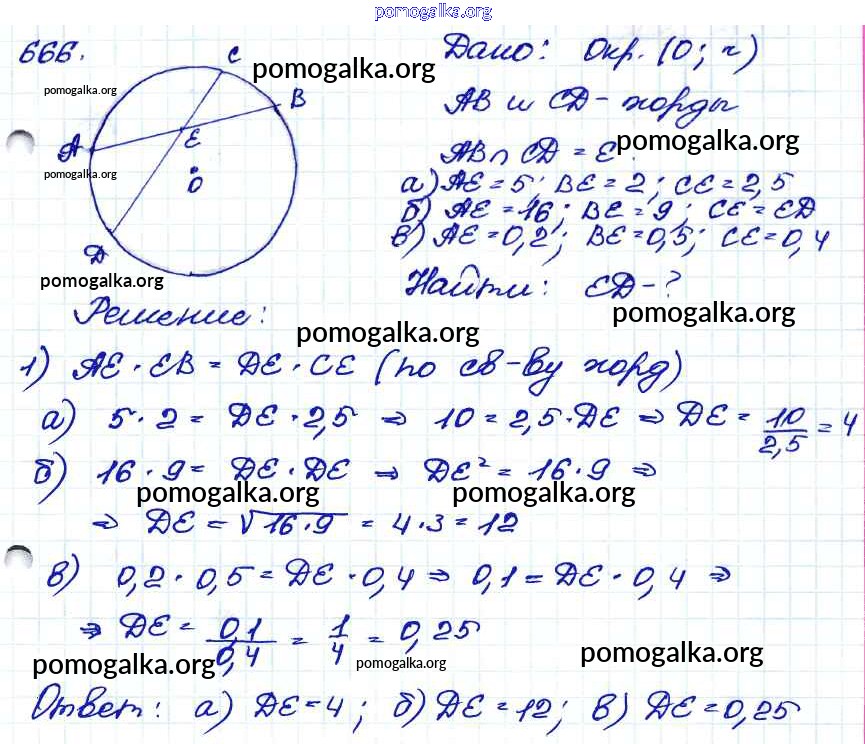 pomogalka.org
666.
C
Дано: Окр. (O; r)
pomogalka.org
pomogalka.org
B
AB и CD - хорды
A
E
pomogalka.org
AB ∩ CD = E.
pomogalka.org
O
а) AE = 5; BE = 2; CE = 2,5
б) AE = 16; BE = 9; CE = ED
в) AE = 0,2; BE = 0,5; CE = 0,4
D
pomogalka.org
Найти: ED - ?
pomogalka.org
Решение:
pomogalka.org
1) AE · EB = DE · CE (по св-ву хорд)
а) 5 · 2 = DE · 2,5 ⇒ 10 = 2,5 · DE ⇒ DE = 10/2,5 = 4
б) 16 · 9 = DE · DE ⇒ DE² = 16 · 9 ⇒
pomogalka.org pomogalka.org
⇒ DE = √16 · 9 = 4 · 3 = 12
в) 0,2 · 0,5 = DE · 0,4 ⇒ 0,1 = DE · 0,4 ⇒
⇒ DE = 0,1/0,4 = 1/4 = 0,25
pomogalka.org pomogalka.org pomogalka.org
Ответ: а) DE = 4; б) DE = 12; в) DE = 0,25